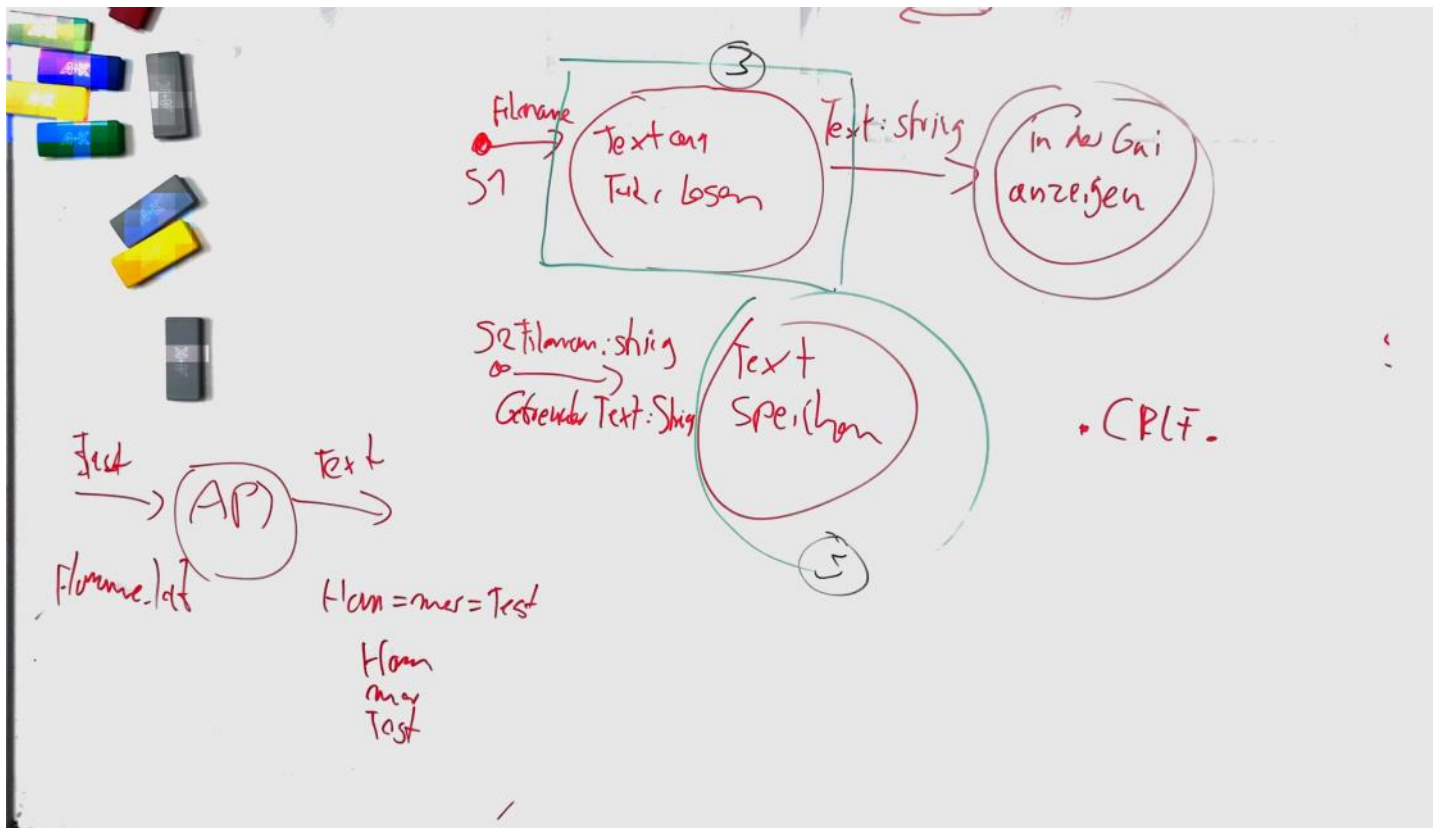 3
Filename
S1
Text aus
lesen
Text:string
in der Gui
anzeigen
S2 Filenam:string
Text:String
Text
Speichern
5
.CRLF.
Text
API
Ham=mer=Test
Ham
mer
Test